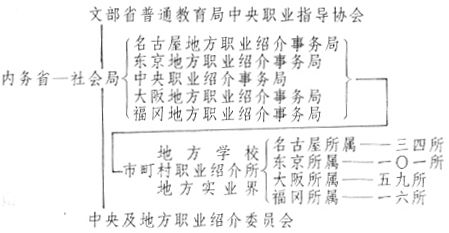 文部省普通教育局中央职业指导协会
名古屋地方职业绍介事务局
东京地方职业绍介事务局
内务省—社会局
中央职业绍介事务局
大阪地方职业绍介事务局
福冈地方职业绍介事务局
地方学校
市町村职业绍介所
地方实业界
名古屋所属——三四所
东京所属——一〇一所
大阪所属——五九所
福冈所属——一六所
中央及地方职业绍介委员会